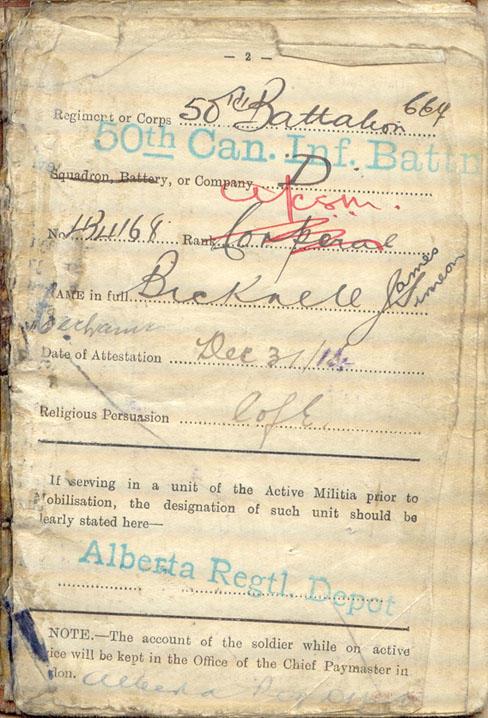 — 2 —
664
Regiment or Corps 50th Battalion
50th Can. Inf. Battn
Squadron, Battery, or Company D
No. Rank Corporal
NAME in full Bicknell James Simeon
Date of Attestation Dec 31/
Religious Persuasion C of E.
If serving in a unit of the Active Militia prior to
Mobilisation, the designation of such unit should be
learly stated here—
Alberta Regtl. Depot
NOTE.—The account of the soldier while on active
ice will be kept in the Office of the Chief Paymaster in
don. Alberta